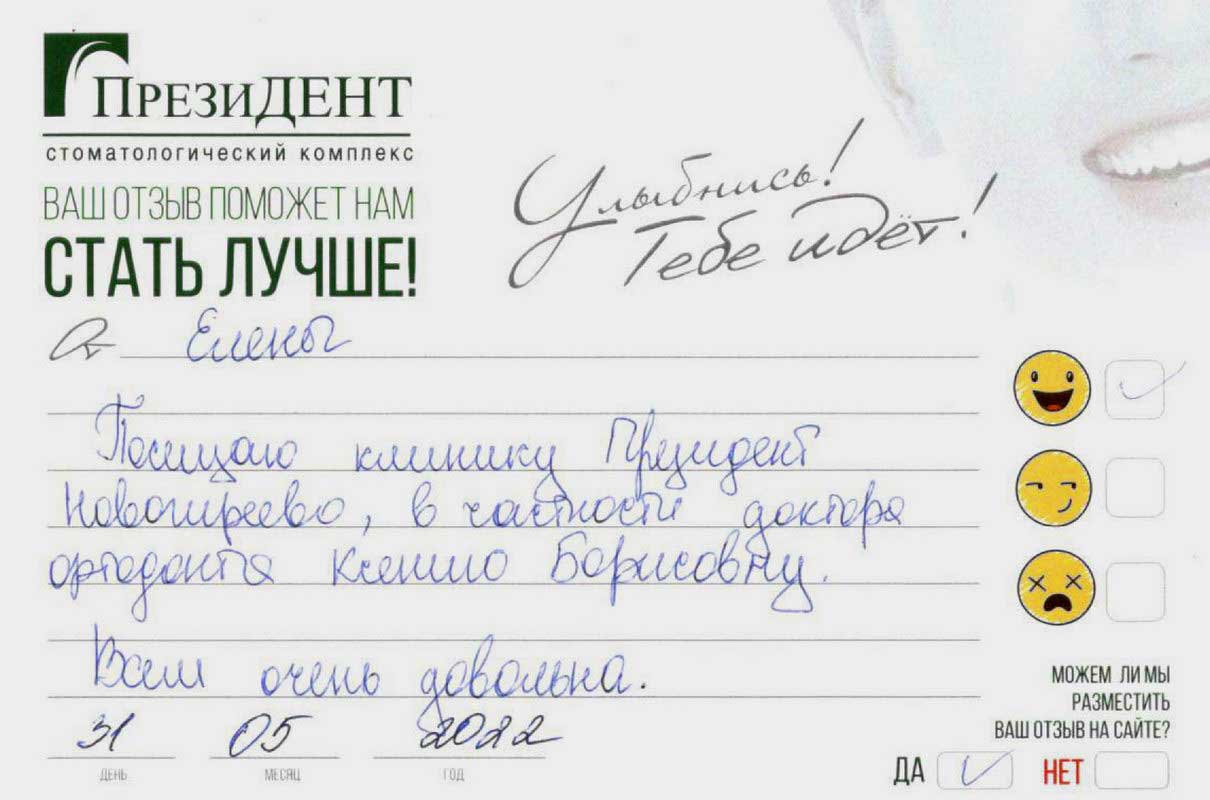 ПрезиДЕНТ
стоматологический комплекс
ВАШ ОТЗЫВ ПОМОЖЕТ НАМ
СТАТЬ ЛУЧШЕ!
Улыбнись!
Тебе идёт!
От Елены
Посещаю клинику Президент
Новогиреево, в частности доктора
ортодонта Ксению Борисовну.
Всем очень довольна.
31 05 2022
ДЕНЬ МЕСЯЦ ГОД
МОЖЕМ ЛИ МЫ
РАЗМЕСТИТЬ
ВАШ ОТЗЫВ НА САЙТЕ?
ДА НЕТ